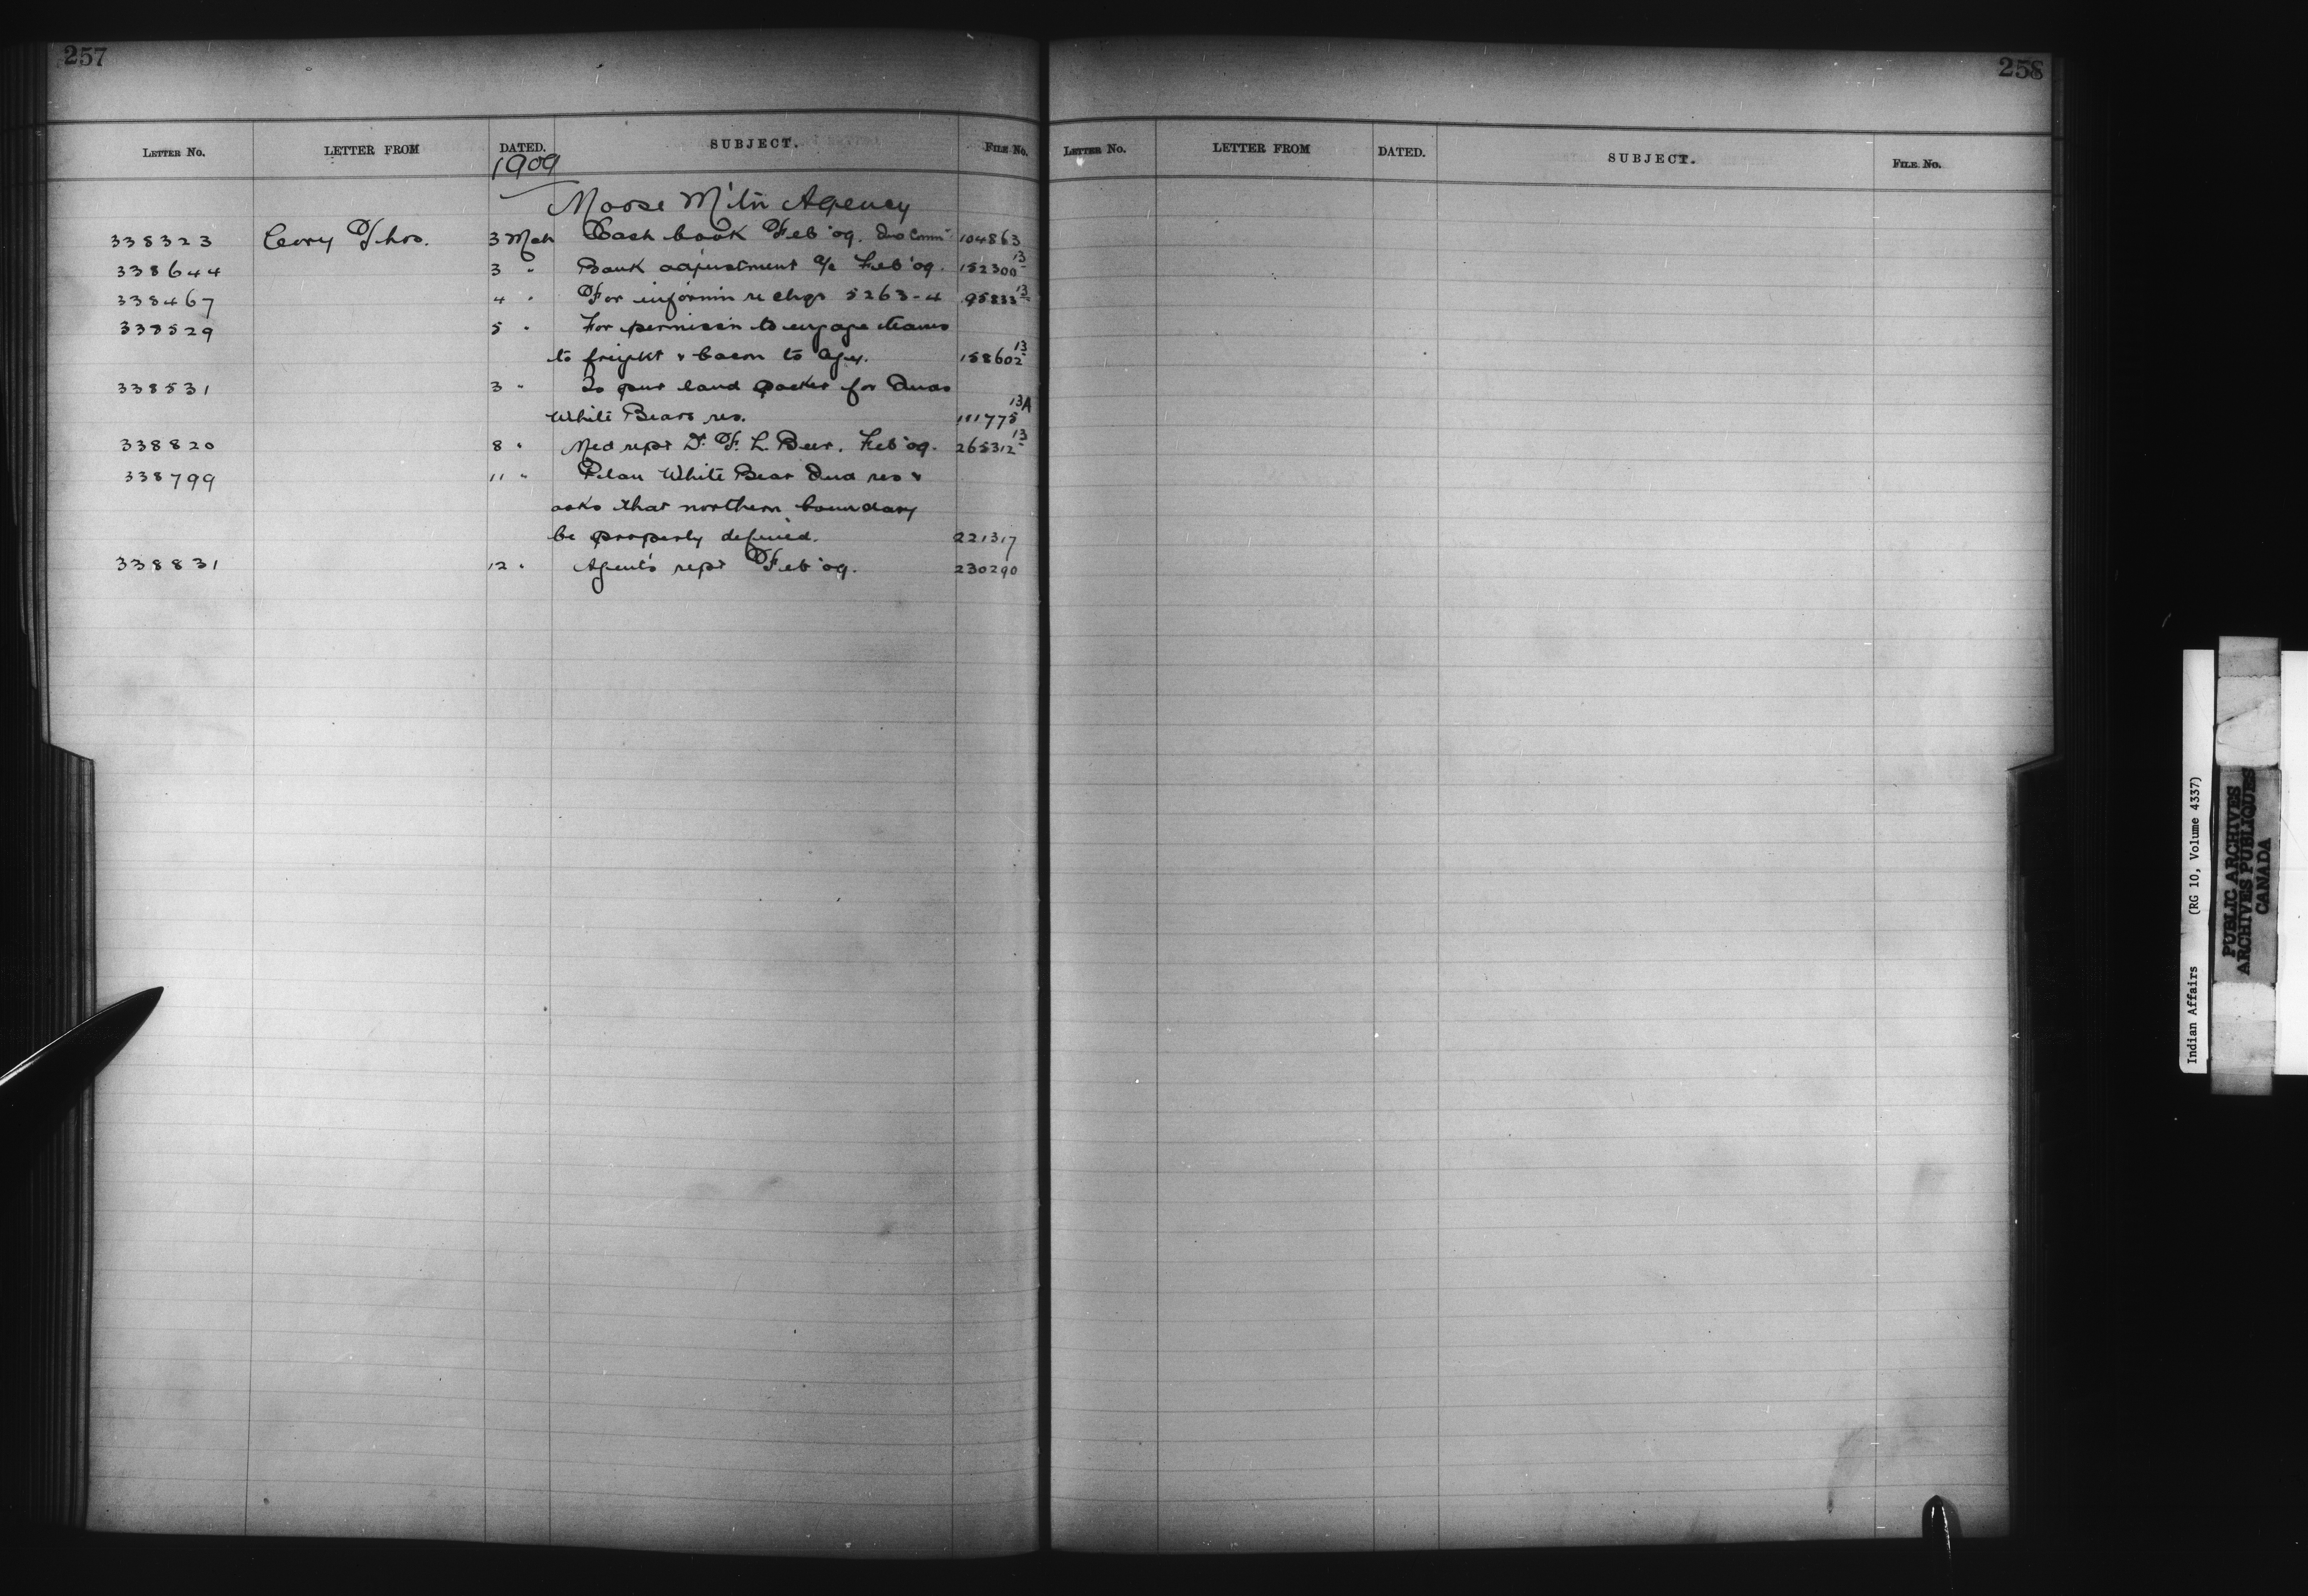 257
LETTER NO. LETTER FROM DATED. SUBJECT. FILE NO.
1909
Moose M'tn Agency
338323 Cory Thos. 3 Mch Cash book Feb '09. Ind Comr 104863
338644 3 " Bank adjustment a/c Feb '09. 152300 13
338467 4 " For informn re chqs 5263-4 95833 13
338529 5 " For permissn to engage teams
to freight & bacon to Agy. 158602 13
338531 3 " land for Inds
White Bears res. 111775 13A
338820 8 " Med rept Dr. F. L. Beer. Feb '09. 265312 13
338799 11 " Plan White Bear Ind res &
asks that northern boundary
be properly defined. 221317
338831 12 " Agent's rept Feb '09. 230290
258
LETTER NO. LETTER FROM DATED. SUBJECT. FILE NO.
Indian Affairs (RG 10, Volume 4337)
PUBLIC ARCHIVES
ARCHIVES PUBLIQUES
CANADA